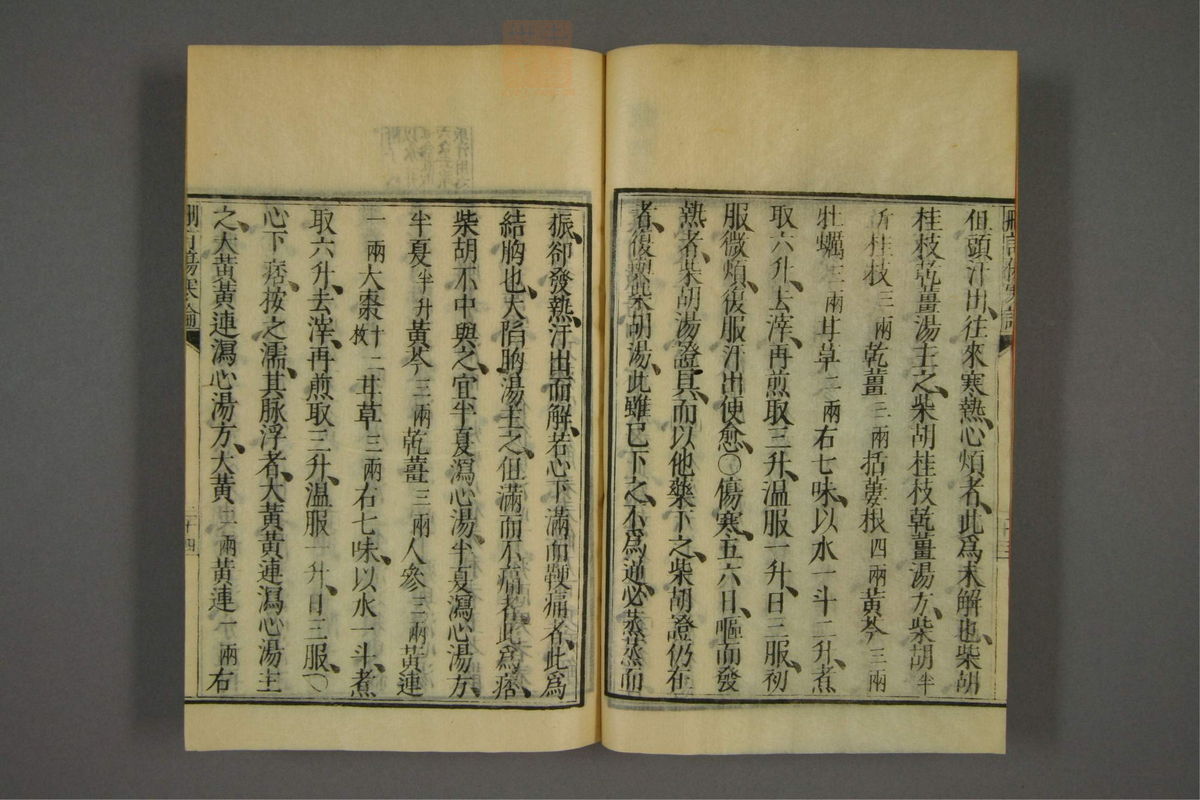 但頭汗出、往來寒熱、心煩者、此爲未解也、柴胡
桂枝乾薑湯主之、柴胡桂枝乾薑湯方、柴胡半
斤桂枝三兩乾薑三兩括蔞根四兩黃芩三兩
牡蠣三兩甘草二兩右七味、以水一斗二升、煮
取六升、去滓、再煎取三升、温服一升、日三服、初
服微煩、復服汗出便愈、〇傷寒五六日、嘔而發
熱者、柴胡湯證具、而以他藥下之、柴胡證仍在
者、復與柴胡湯、此雖已下之、不爲逆、必蒸蒸而
振、卻發熱、汗出而解、若心下滿而鞕痛者、此爲
結胸也、大陷胸湯主之、但滿而不痛者、此爲痞、
柴胡不中與之、宜半夏瀉心湯、半夏瀉心湯方、
半夏半升黃芩三兩乾薑三兩人參三兩黃連
一兩大棗十二枚甘草三兩右七味、以水一斗、煮
取六升、去滓、再煎取三升、温服一升、日三服、〇
心下痞、按之濡、其脉浮者、大黃黃連瀉心湯主
之、大黃黃連瀉心湯方、大黃二兩黃連一兩右
傷寒論